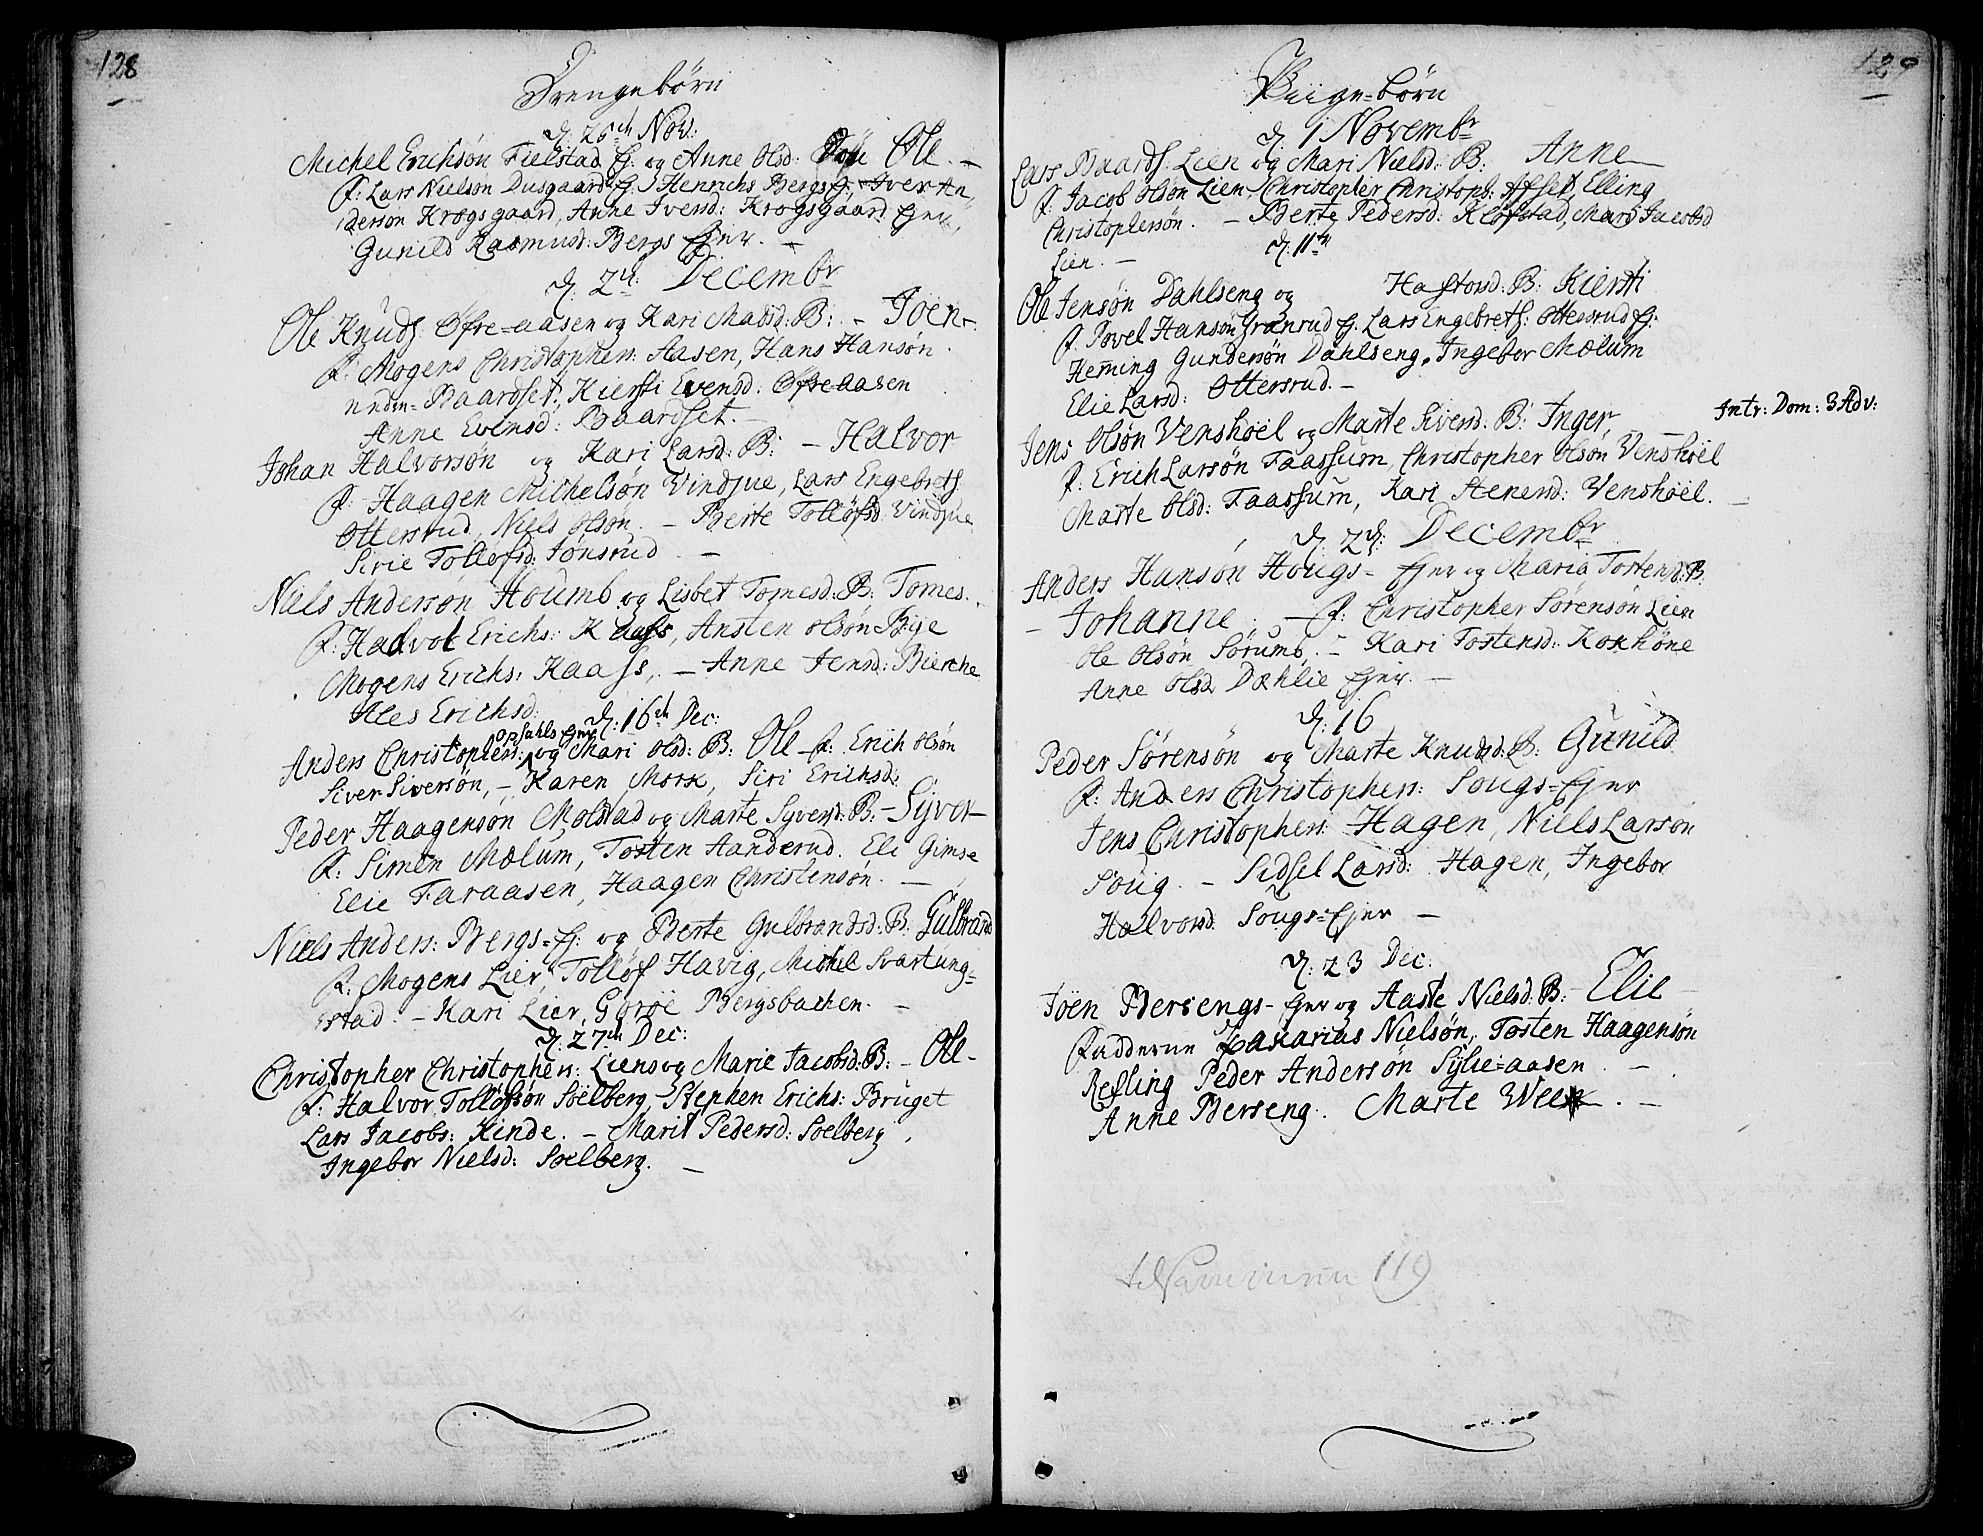 128
Drengebørn
d: 26th Nov:
Michel Erichsøn Fielstad ej: og Anne Olsd: Ole. –
F: Lars Nielsøn Dusgaard ej: J Henrichs Bergs ej:, Iver An-
dersøn Krogsgaard, Anne Iversd: Krogsgaard Ejer,
Gunild Rasmusd: Bergs Ejer. –
d: 2d: Decembr
Ole Knuds: Øfre=aasen og Kari Madsd: B: – Joen –
F: Mogens Christophers: Aasen, Hans Hansøn
neden=Baardset, Kiersti Evensd: Øfre-aasen
Anne Evensd: Baardset. –
Johan Halvorsøn og Kari Larsd: B: – Halvor
F: Haagen Michelsøn Vindjue, Lars Engebretß
Ottersrud, Niels Olsøn. – Berte Tollofsd: Vindjue
Sirie Tollofsd: Jonsrud –
Niels Andersøn Houmb og Lisbet Tomesd: B: Tomes.
F: Halvor Erichs: Kaass, Ansten Olsøn Bye
Mogens Erichs: Kaass, – Anne Jensd: Bierche
Ales Erichsd: d: 16th Dec:
opsahls Ejer
Anders Christophers: og Mari Olsd: B: Ole – F: Erich Olsøn
Siver Siversøn, – Karen Mork, Siri Erichsd:
Peder Haagensøn Molstad og Marte Syversd: B: – Syver –
F: Simen Mælum, Tosten Handerud. Eli Gimse
Elie Faraasen, Haagen Christensøn. –
Niels Anders: Bergs=ej: og Berte Gulbrandsd: B: Gulbrand
F: Mogens Lier, Tollof Havig, Michel Svartung=
stad – Kari Lier, Gyroe Bergsbachen. –
d: 27th Dec:
Christopher Christophers: Liens og Marie Jacobsd: B: – Ole –
F: Halvor Tollofsøn Soelberg – Stephen Erichs: Bruget
Lars Jacobs: Kinde. – Marit Pedersd: Soelberg
Ingebor Nielsd: Soelberg. –
129
Piige=børn
d: 1 Novembr
Lars Baardß: Lien og Mari Nielsd: B: Anne –
F: Jacob Olsøn Lien, Christopher Christoph: Afset, Elling
Christophersøn. – Berte Pedersd: Klofstad, Mari Jacobsd
Lien. –
d: 11te
Ole Jensøn Dahlseng og Haftorsd: B: Kiersti
F: Povel Hansøn Granrud ej: Lars Engebretß: Ottersrud ej:
Heming Gundersøn Dahlseng, Ingebor Mælum
Elie Larsd: Ottersrud. –
Intr: Dom: 3 Adv:
Jens Olsøn Venshoel og Marte Siversd: B: Inger, –
F: Erich Larsøn Faassum, Christopher Olsøn Venshoel
Marte Olsd: Faassum, Kari Stenersd: Venshoel. –
d: 2d: Decembr
Anders Hansøn Hougs= Ejer og Maria Tostensd: B:
– Johanne. – F: Christopher Sørensøn Lien
Ole Olsøn Sørumb. – Kari Tostensd: Kokhone
Anne Olsd Dæhlie Ejer. –
d: 16
Peder Sørensøn og Marte Knudsd: B: Gunild
F: Anders Christophers: Sougs=Ejer
Jens Christophers: Hagen, Niels Larsøn
Soug. – Sidsel Larsd: Hagen, Ingebor
Halvorsd: Sougs=Ejer –
d: 23 Dec:
Joen Berseng's – Ejer og Aaste Nielsd: B: – Elie –
Fadderne Zakarias Nielsøn, Tosten Haagensøn
Resling Peder Andersøn Sylie=aasen. –
Anne Berseng. MarteWeen. –
119